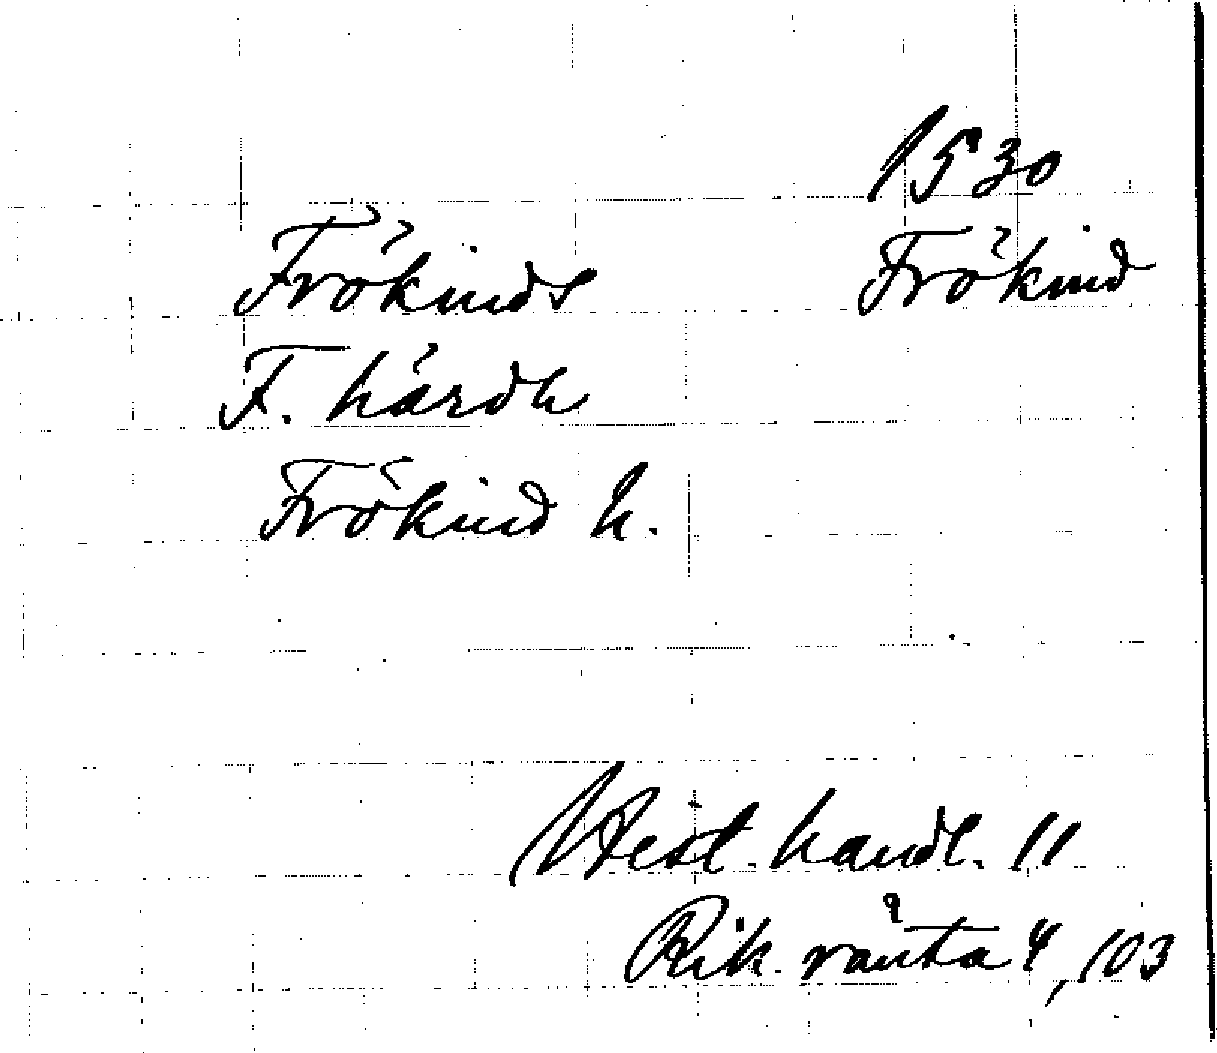 1530
Frökinds Frökind
F. härdh
Frökind h.
Hist. handl. 11
Rik. ränta 4, 103